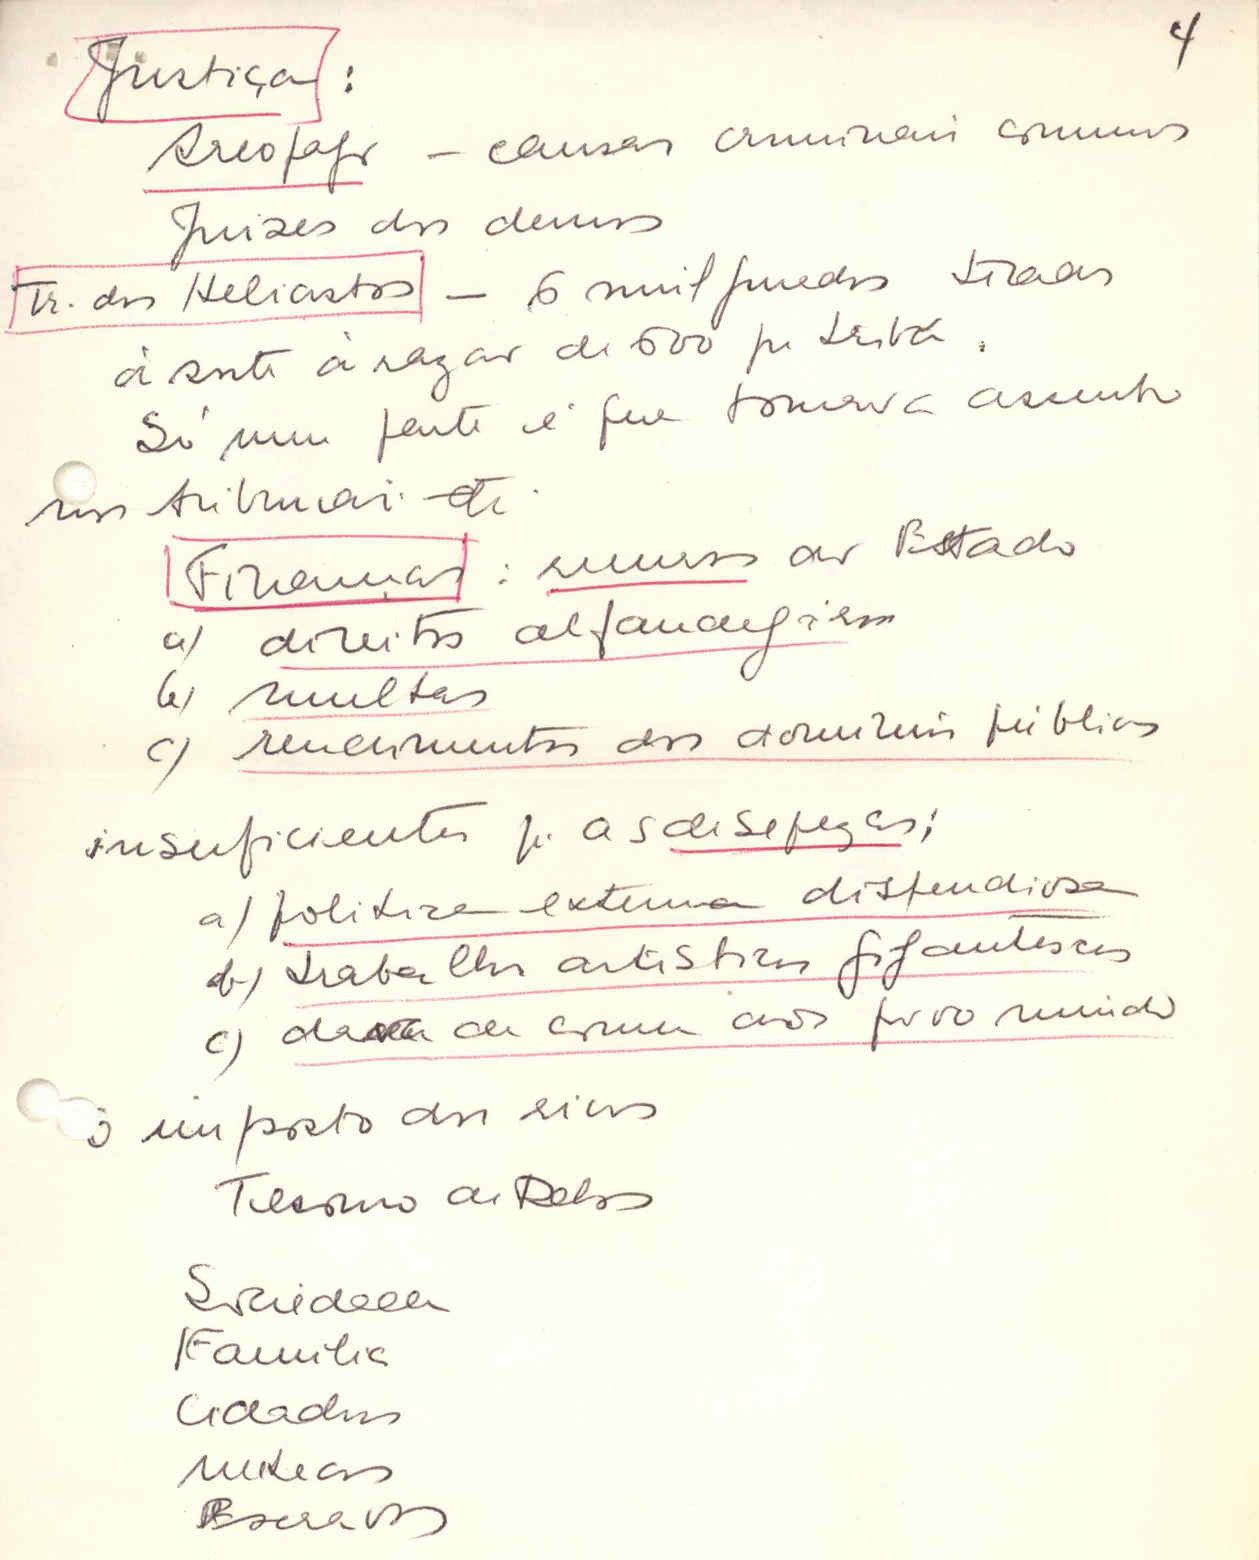 4
Justiça:
Areopago – causas criminais comuns
Juizes dos demos
Tr. dos Heliastas – 6 mil jurados tirados
à sorte à razão de 600 p. tribu.
Só uma parte é que tomava assento
nos tribunais
Finanças: recursos do Estado
a) direitos alfandegários
b) multas
c) rendimentos dos domínios públicos
insuficientes p. as despezas;
a) politica externa dispendiosa
b) trabalhos artisticos gigantescos
c) de comer aos povo miúdo
o imposto dos ricos
Tesouro de Delos
Sociedade
Familia
Cidadãos
metecos
Escravos